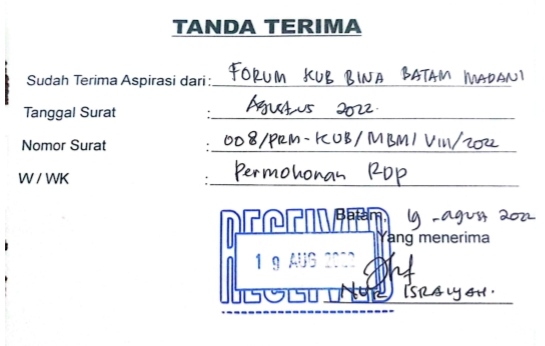 TANDA TERIMA
Sudah Terima Aspirasi dari: FORUM KUB BINA BATAM MADANI
Tanggal Surat : Agustus 2022.
Nomor Surat : 008/PRM-KUB/MBM/VIII/2022
W / WK : Permohonan RDP
RECEIVED
Batam, 19 - agust 2022
Yang menerima
19 AUG 2022
RECEIVED
NUR ISRAIYAH.